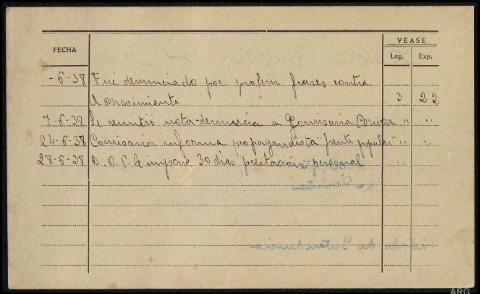 VEASE
FECHA Leg. Exp.
-6-38 Fué denunciado por proferir frases contra
Movimiento 3 22
7-6-38 Se remitió nota-denuncia a Comisaria " "
24-6-38 Comisaria informa propagandista "frente popular" " "
28-6-38 O. P. le impone 30 dias prestación personal " "
ARG